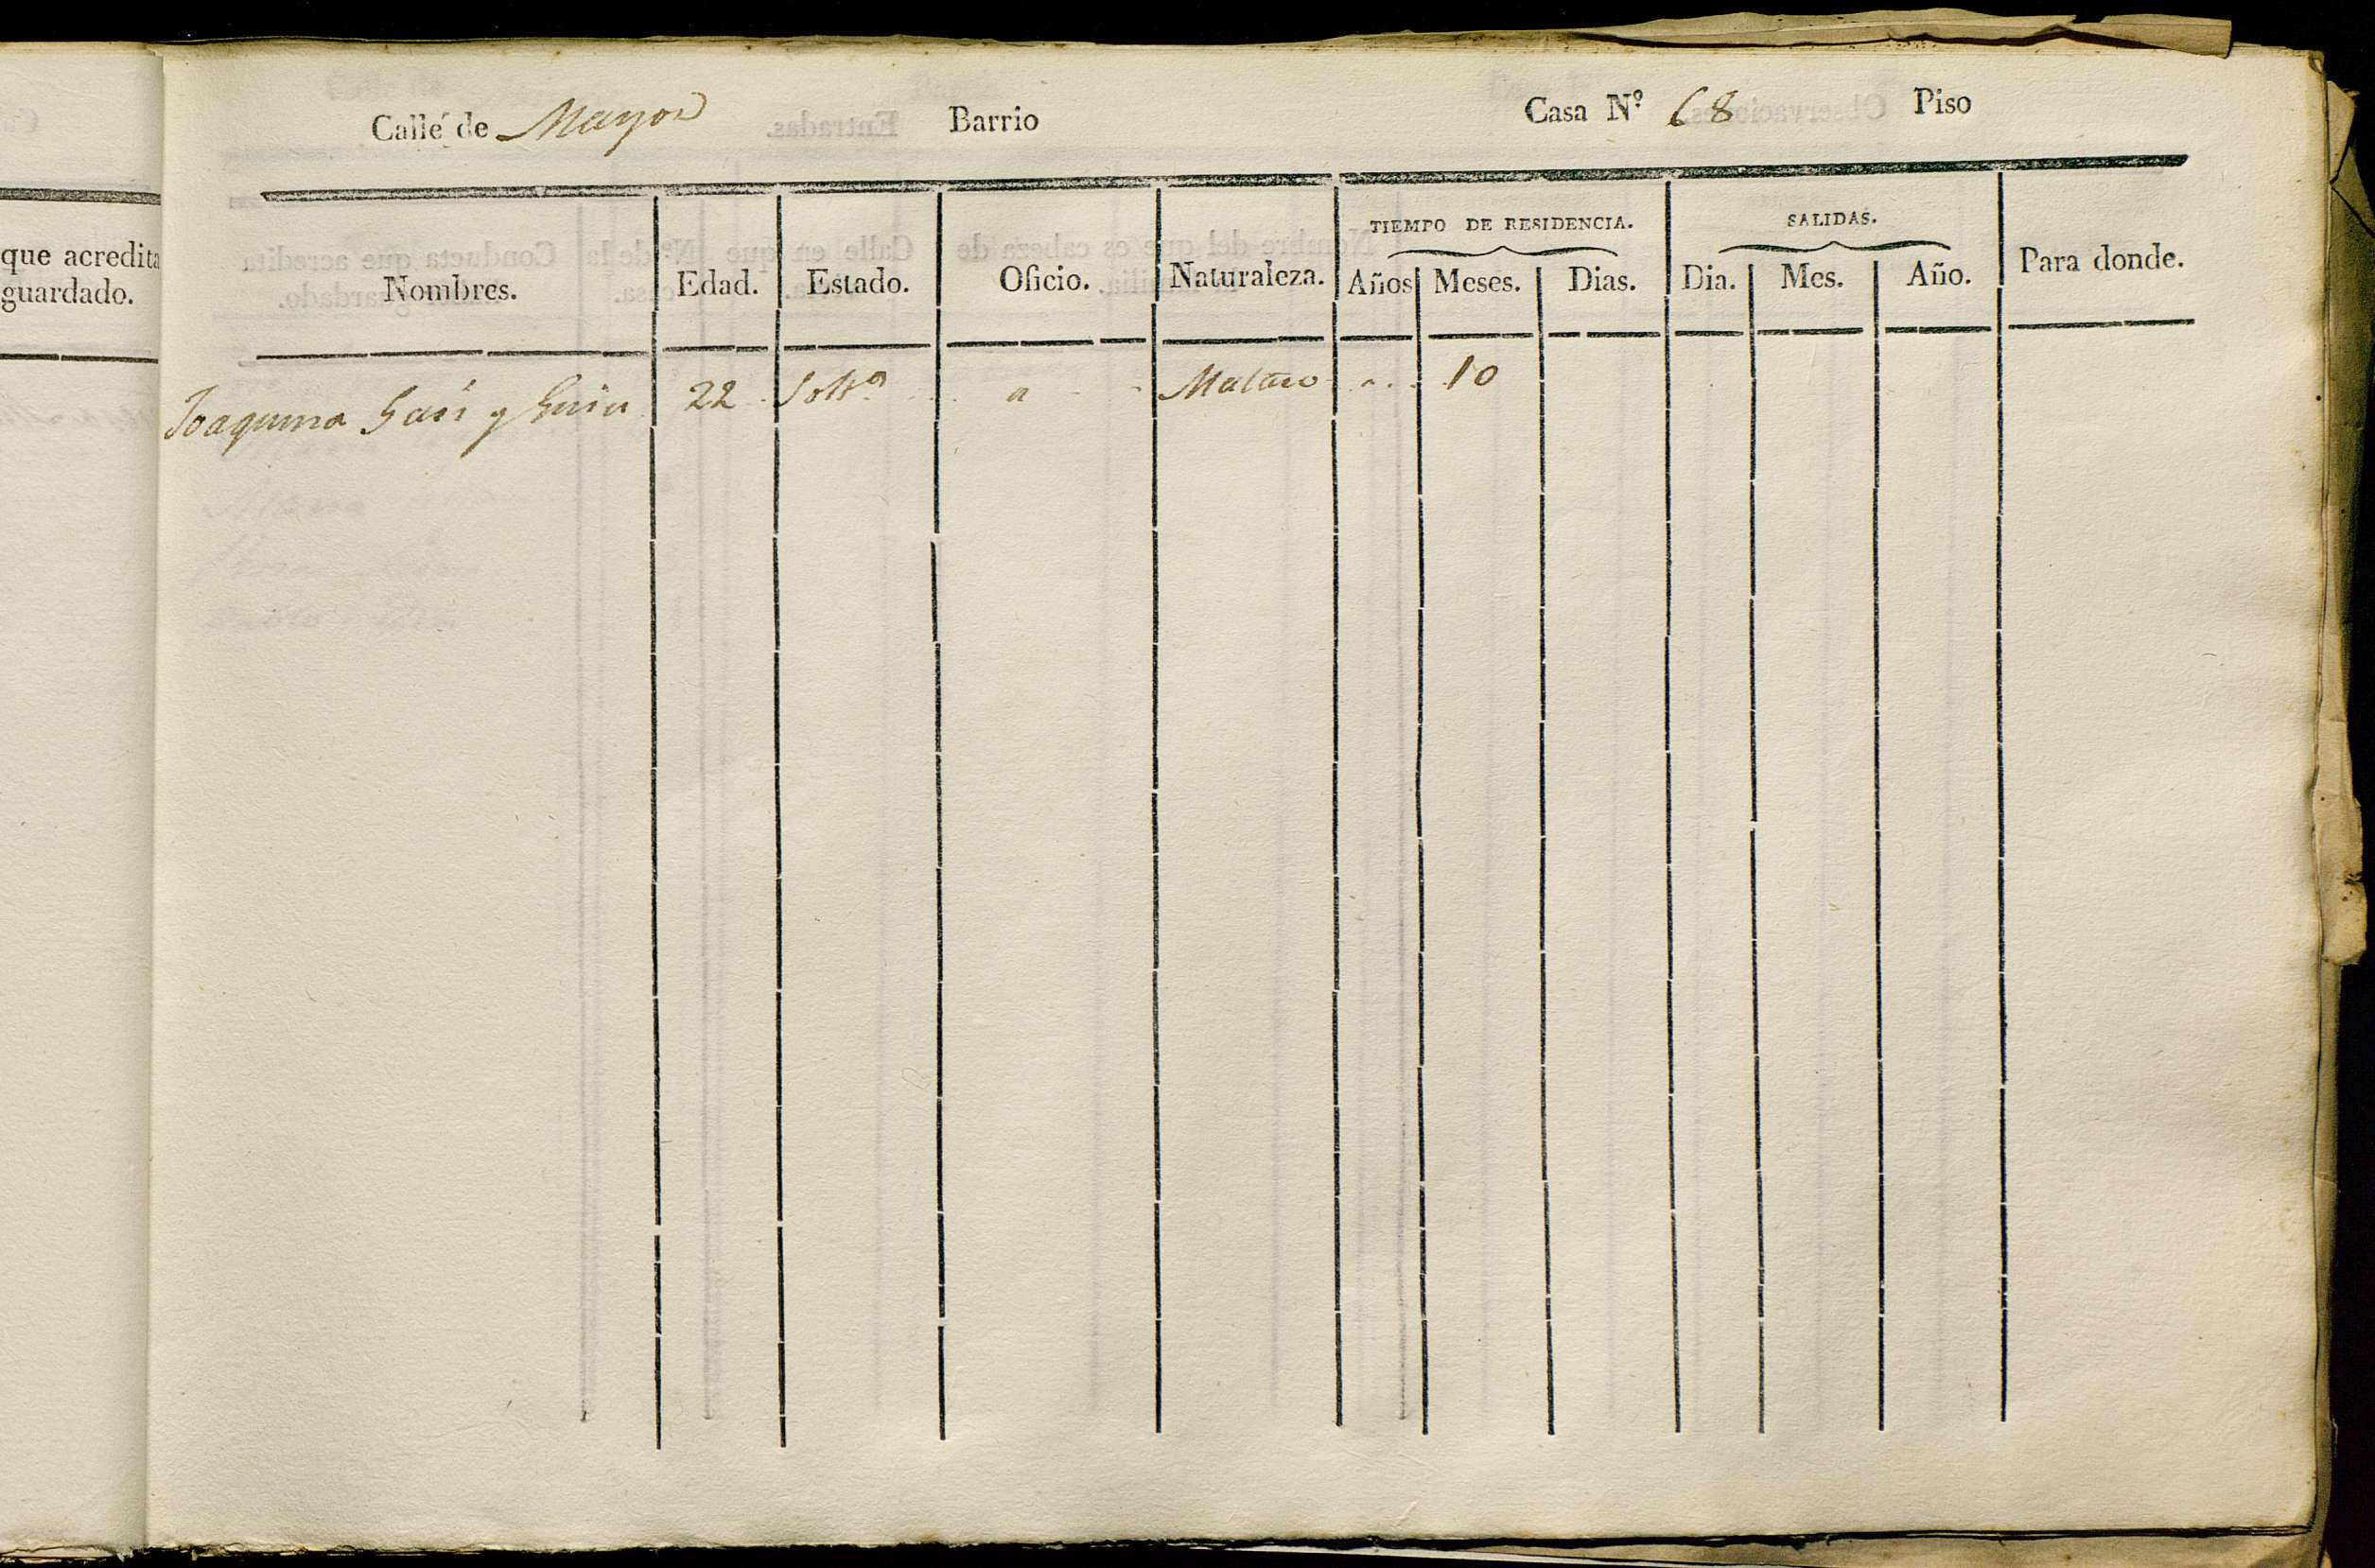 Calle de Mayor Barrio Casa Nº 68 Piso
que acredita
guardado.
TIEMPO DE RESIDENCIA. SALIDAS.
Nombres. Edad. Estado. Oficio. Naturaleza. Años Meses. Dias. Dia. Mes. Año. Para donde.
Joaquina y 22 Solt.ª " Mataro " 10